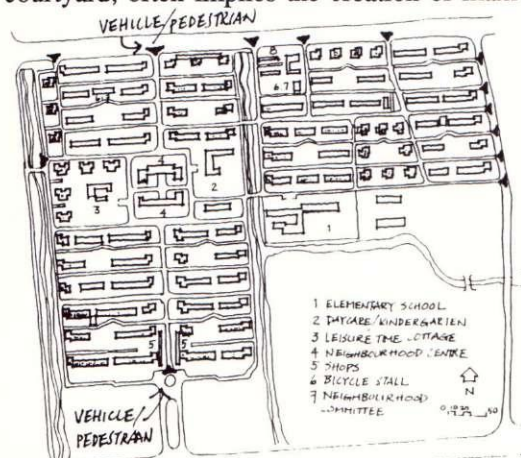 courtyard, often implies the creation of
VEHICLE/PEDESTRIAN
8
6 7
4
2
3
4
1
5 5
1 ELEMENTARY SCHOOL
2 DAYCARE/KINDERGARTEN
3 LEISURE TIME COTTAGE
4 NEIGHBOURHOOD CENTRE
5 SHOPS
6 BICYCLE STALL
7 NEIGHBOURHOOD
COMMITTEE
N
VEHICLE/
PEDESTRIAN